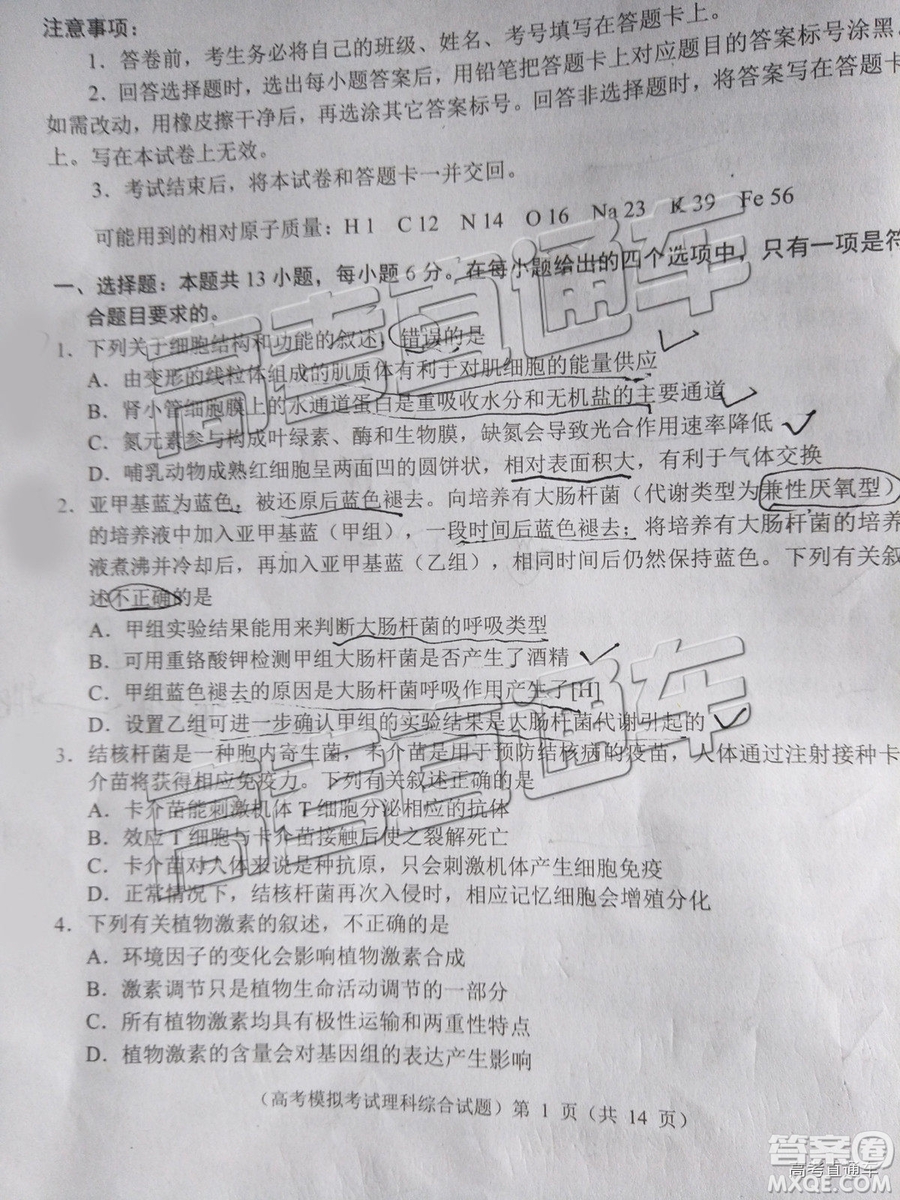 注意事项：
1．答卷前，考生务必将自己的班级、姓名、考号填写在答题卡上。
2．回答选择题时，选出每小题答案后，用铅笔把答题卡上对应题目的答案标号涂黑。
如需改动，用橡皮擦干净后，再选涂其它答案标号。回答非选择题时，将答案写在答题卡
上。写在本试卷上无效。
3．考试结束后，将本试卷和答题卡一并交回。
可能用到的相对原子质量：H 1 C 12 N 14 O 16 Na 23 K 39 Fe 56
一、选择题：本题共 13 小题，每小题 6 分。在每小题给出的四个选项中，只有一项是符
合题目要求的。
1．下列关于细胞结构和功能的叙述，错误的是
A．由变形的线粒体组成的肌质体有利于对肌细胞的能量供应
B．肾小管细胞膜上的水通道蛋白是重吸收水分和无机盐的主要通道
C．氮元素参与构成叶绿素、酶和生物膜，缺氮会导致光合作用速率降低
D．哺乳动物成熟红细胞呈两面凹的圆饼状，相对表面积大，有利于气体交换
2．亚甲基蓝为蓝色，被还原后蓝色褪去。向培养有大肠杆菌（代谢类型为兼性厌氧型）
的培养液中加入亚甲基蓝（甲组），一段时间后蓝色褪去；将培养有大肠杆菌的培养
液煮沸并冷却后，再加入亚甲基蓝（乙组），相同时间后仍然保持蓝色。下列有关叙
述不正确的是
A．甲组实验结果能用来判断大肠杆菌的呼吸类型
B．可用重铬酸钾检测甲组大肠杆菌是否产生了酒精
C．甲组蓝色褪去的原因是大肠杆菌呼吸作用产生了[H]
D．设置乙组可进一步确认甲组的实验结果是大肠杆菌代谢引起的
3．结核杆菌是一种胞内寄生菌，卡介苗是用于预防结核病的疫苗，人体通过注射接种卡
介苗将获得相应免疫力。下列有关叙述正确的是
A．卡介苗能刺激机体 T 细胞分泌相应的抗体
B．效应 T 细胞与卡介苗接触后使之裂解死亡
C．卡介苗对人体来说是种抗原，只会刺激机体产生细胞免疫
D．正常情况下，结核杆菌再次入侵时，相应记忆细胞会增殖分化
4．下列有关植物激素的叙述，不正确的是
A．环境因子的变化会影响植物激素合成
B．激素调节只是植物生命活动调节的一部分
C．所有植物激素均具有极性运输和两重性特点
D．植物激素的含量会对基因组的表达产生影响
（高考模拟考试理科综合试题）第 1 页（共 14 页）
高考直通车
高考直通车
答案圈
高考直通车
MXQE.COM